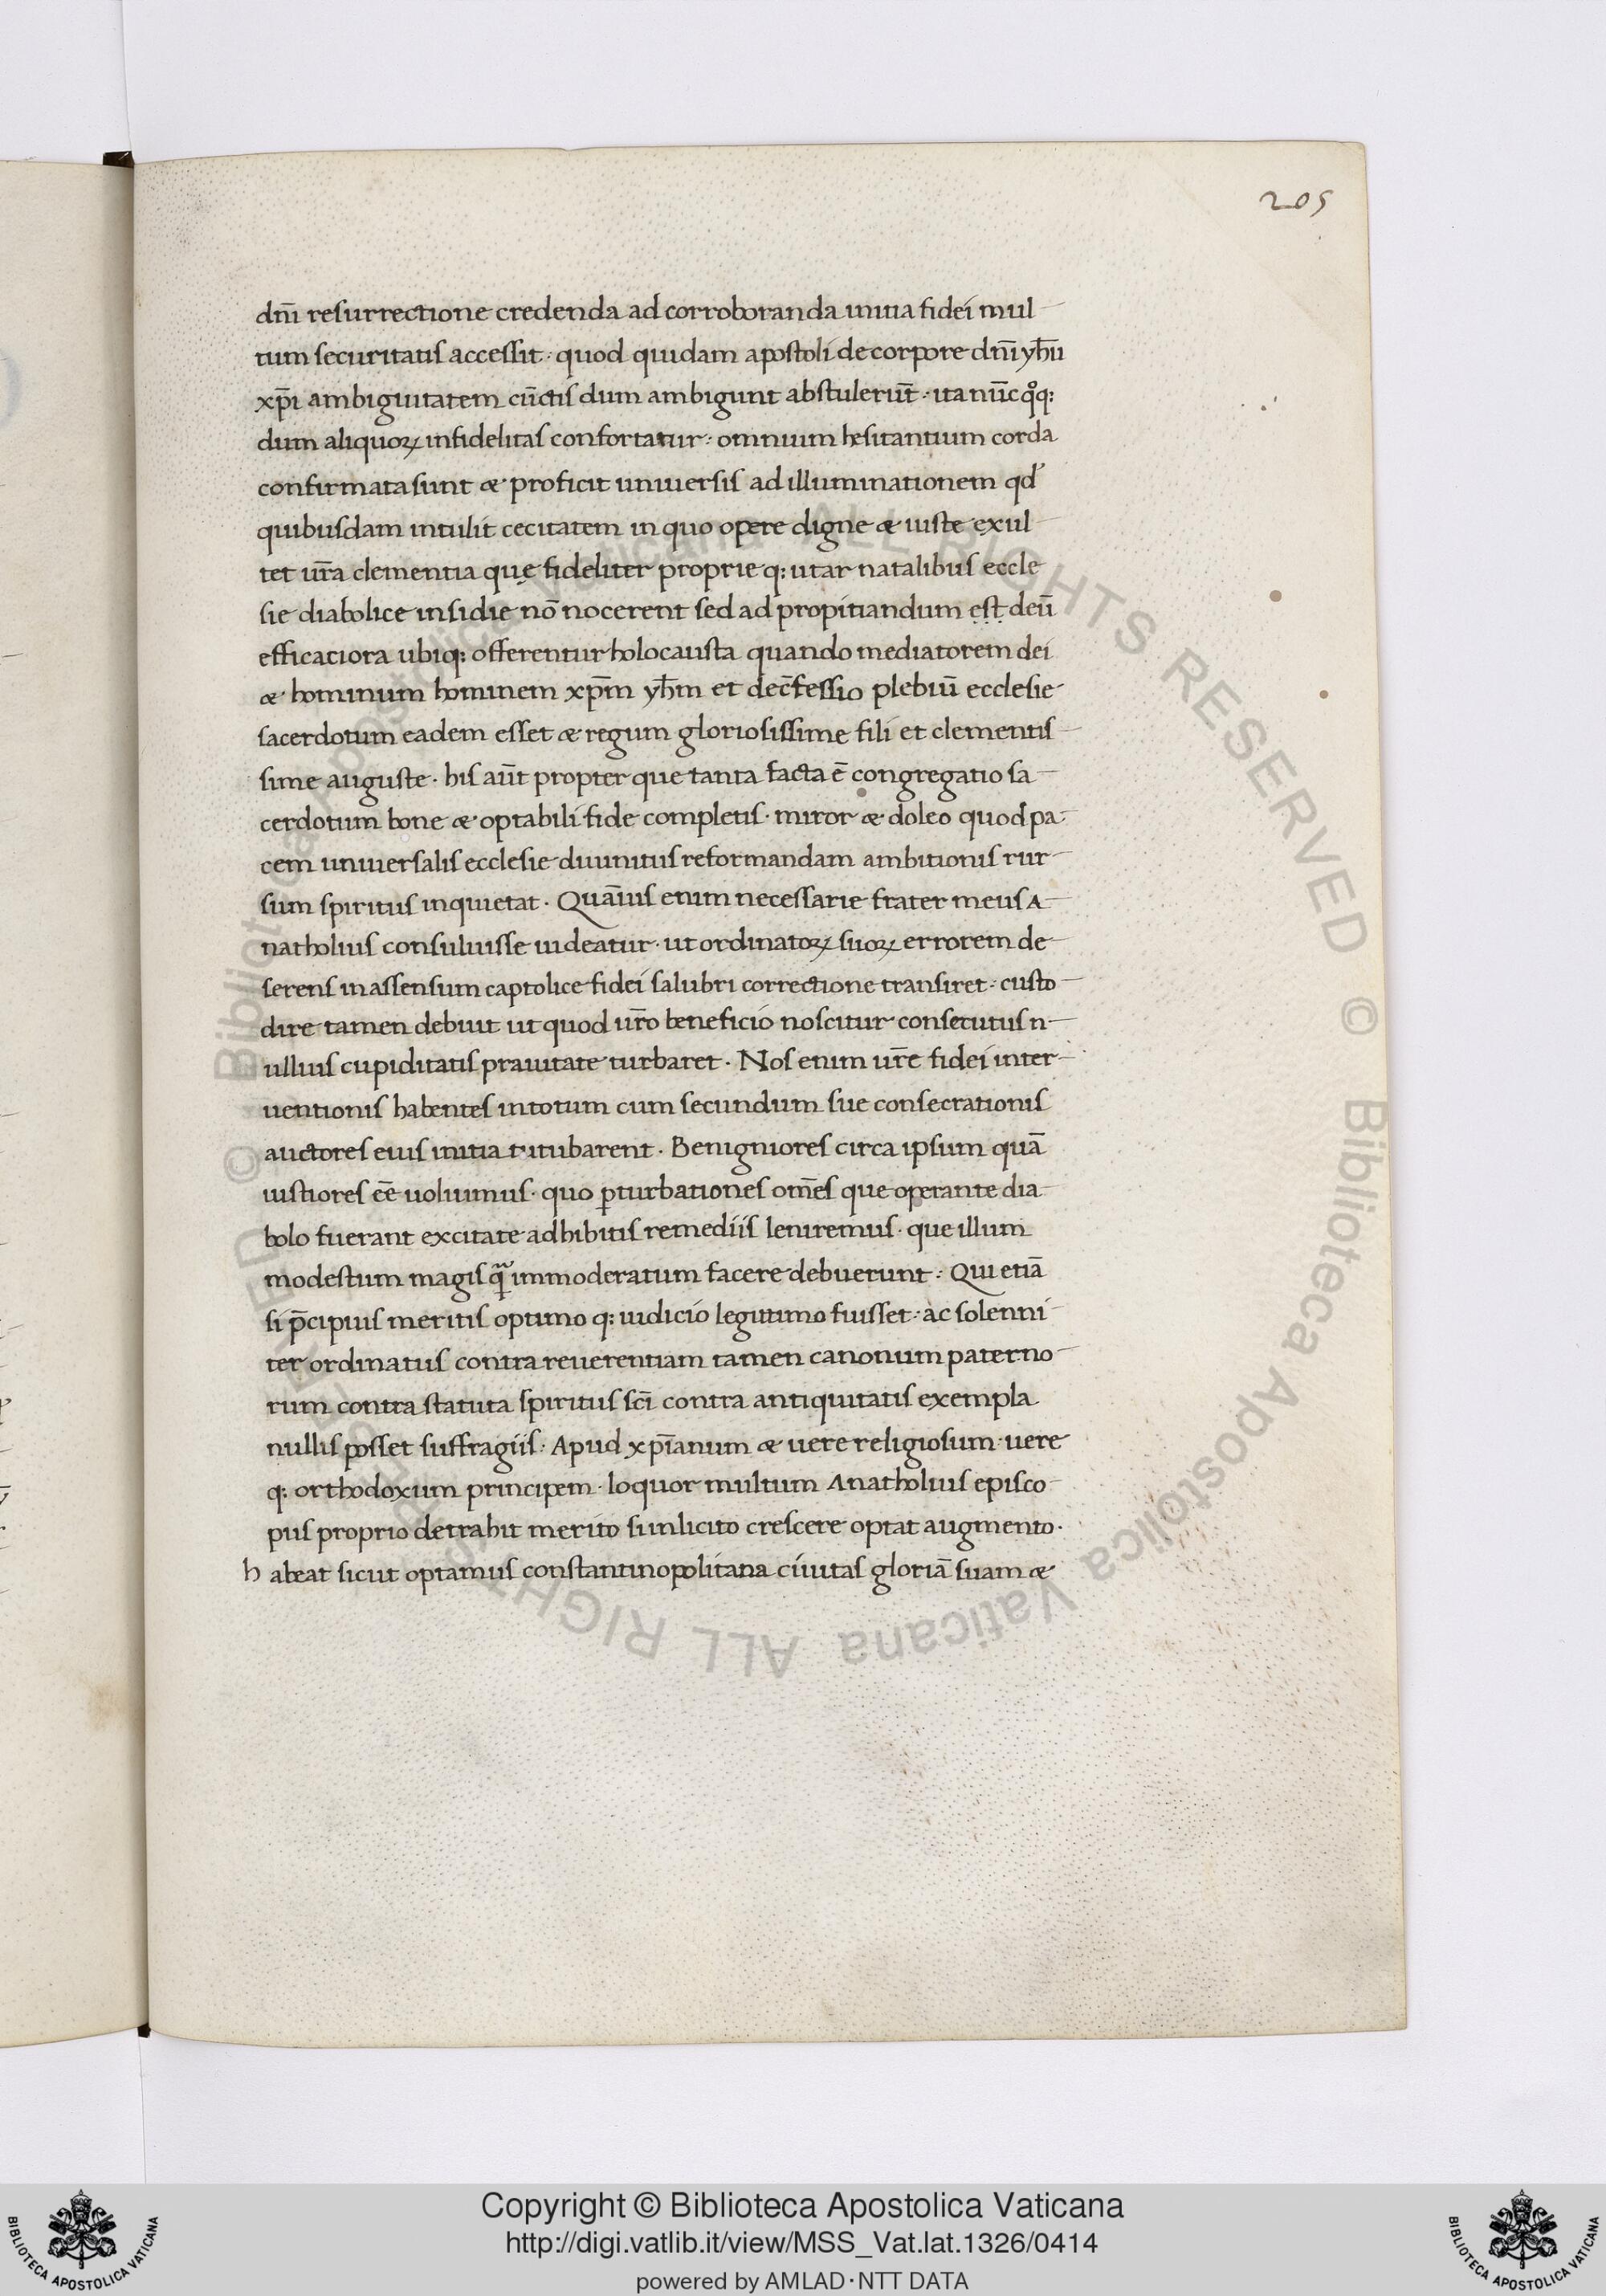 205
dn̄i resurrectione credenda ad corroboranda initia fidei mul
tum securitatis accessit · quod quidam apostoli de corpore dn̄i yh̄u
xp̄i ambiguitatem cūctis dum ambigunt abstulerūt · ita nūc qͦq:
dum aliquoꝝ infidelitas confortatur : omnium hesitantium corda
confirmata sunt & proficit uniuersis ad illuminationem qd̓
quibusdam intulit cecitatem in quo opere digne & iuste exul
tet ur̄a clementia quę fideliter proprie q: utar natalibus eccle
sie diabolice insidie nō nocerent sed ad propitiandum est deū
efficaciora ubiq: offerentur holocausta quando mediatorem dei
& hominum hominem xp̄m yh̄m et dec̄fessio plebiū ecclesie
sacerdotum eadem esset & regum gloriosissime fili et clementis
sime auguste · his aūt propter que tanta facta ē congregatio sa
cerdotum bone & optabili fide completis · miror & doleo quod pa
cem uniuersalis ecclesie diuinitus reformandam ambitionis rur
sum spiritus inquietat · Quāuis enim necessarie frater meus A
natholius consuluisse uideatur · ut ordinatoꝝ suoꝝ errorem de
serens in assensum captolice fidei salubri correctione transiret · custo
dire tamen debuit ut quod ur̄o beneficio noscitur consecutus n
ullius cupiditatis prauitate turbaret · Nos enim ur̄e fidei inter
uentionis habentes intotum cum secundum sue consecrationis
auctores eius initia titubarent · Benigniores circa ipsum quā
iustiores eē uoluimus · quo ꝑturbationes om̄es que operante dia
bolo fuerant excitate adhibitis remediis leniremus · que illum
modestum magis qua immoderatum facere debuerunt : Qui etiā
si p̄cipuis meritis optimo q: iudicio legitimo fuisset · ac solenni
ter ordinatus contra reuerentiam tamen canonum paterno
rum contra statuta spiritus sc̄i contra antiquitatis exempla
nullis posset suffragiis · Apud xp̄ianum & uere religiosum · uere
q: orthodoxum principem · loquor multum Anatholius episco
pus proprio detrahit merito si inlicito crescere optat augmento ·
h abeat sicut optamus constantinopolitana ciuitas gloriā suam &
© Biblioteca Apostolica Vaticana ALL RIGHTS RESERVED © Biblioteca Apostolica Vaticana ALL RIGHTS RESERVED
BIBLIOTECA APOSTOLICA VATICANA
Copyright © Biblioteca Apostolica Vaticana
http://digi.vatlib.it/view/MSS_Vat.lat.1326/0414
powered by AMLAD·NTT DATA
BIBLIOTECA APOSTOLICA VATICANA